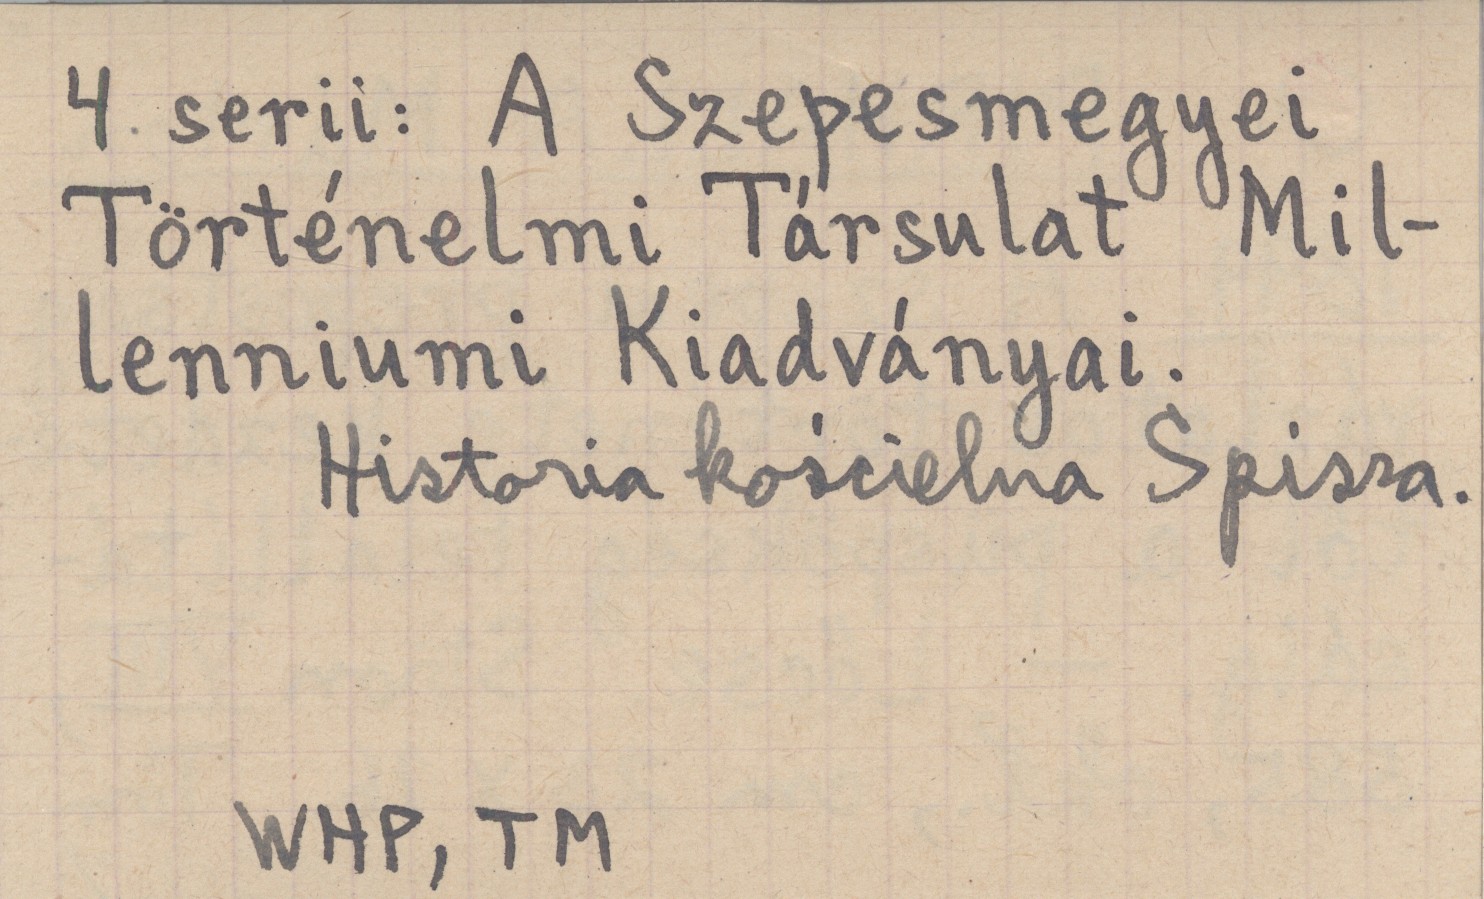 4. serii: A Szepesmegyei
Történelmi Társulat Mil-
lenniumi Kiadványai.
Historia kościelna Spisza.
WHP, TM